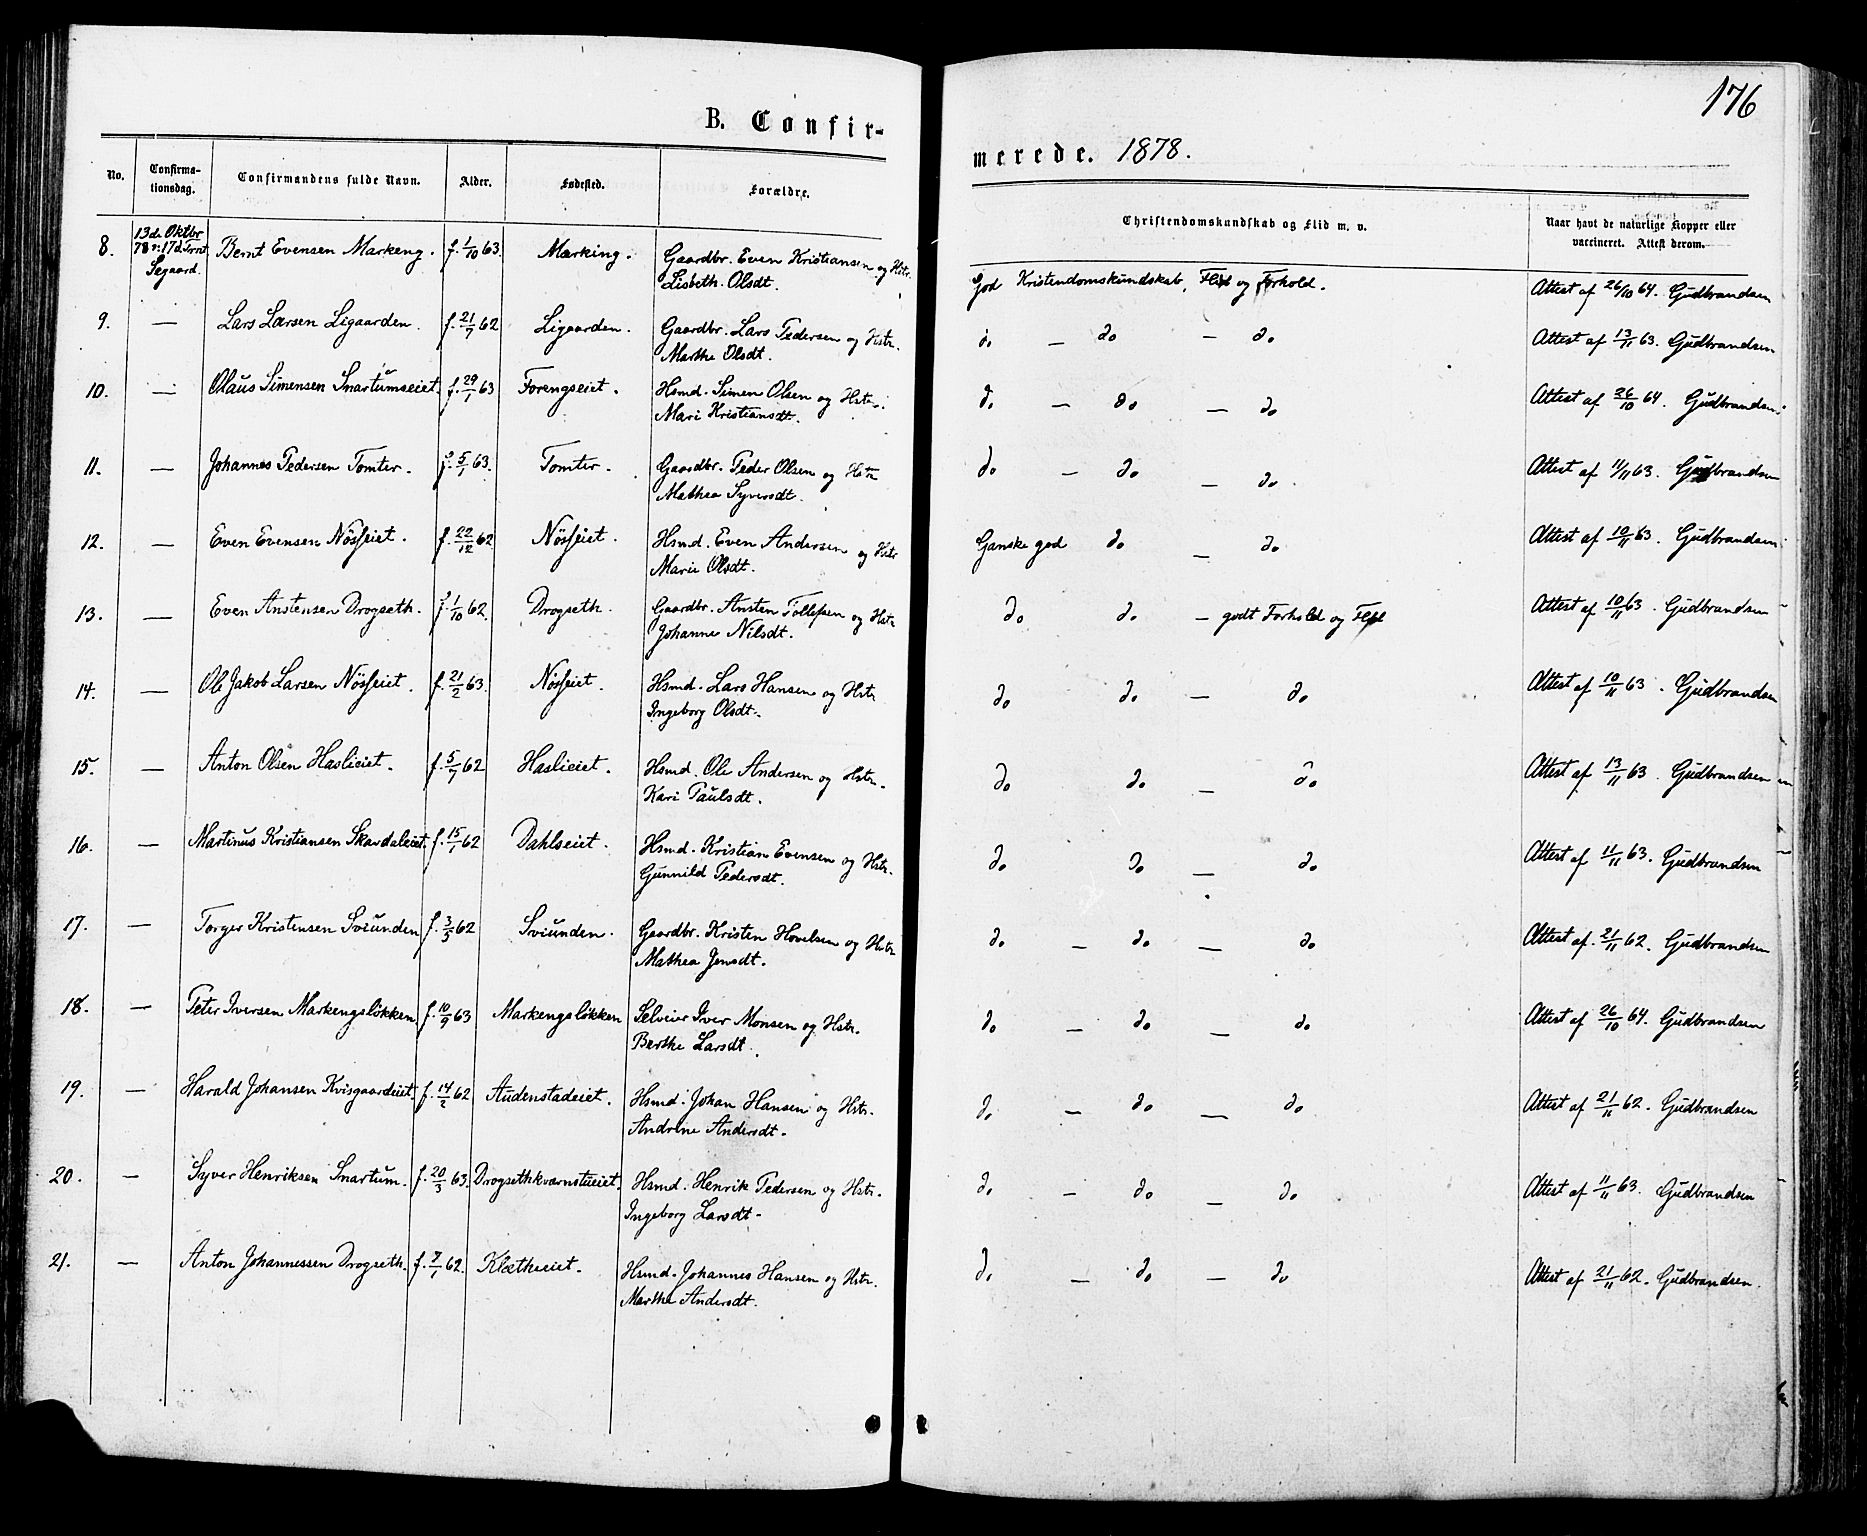 176
B. Confir-
merede. 1878.
No. Confirma-tionsdag. Confirmandens fulde Navn. Alder. Fødested. Forældre. Christendomskundskab og Flid m. v. Naar havt de naturlige Kopper eller vaccineret. Attest derom.
8. 13d. Oktbr 78 17d. Segaard. Bernt Evensen Markeng. f. 1/10 63 Marking. Gaardbr. Even Kristiansen og Hstr. God Kristendomskundskab, Flid og Forhold. Attest af 26/10 64. Gudbrandsen
Lisbeth. Olsdt.
9. — Lars Larsen Ligaarden. f. 21/7 62 Ligaarden. Gaardbr. Lars Pedersen og Hstr. do — do — do Attest af 13/11 63. Gudbrandsen
Marthe Olsdt.
10. — Olaus Simensen Snartumseiet. f. 29/1 63 Forengseiet. Hsmd. Simen Olsen og Hstr. do — do — do Attest af 26/10 64. Gudbrandsen.
Mari Kristiansdt.
11. — Johannes Pedersen Tomter. f. 5/1 63. Tomter. Gaardbr. Peder Olsen og Hstr do — do — do Attest af 11/11 63. Gudbrandsen
Mathea Syversdt.
12. — Even Evensen Nösseiet. f. 22/12 62 Nösseiet. Hsmd. Even Andersen og Hstr Ganske god do — do Attest af 10/11 63. Gudbrandsen
Marie Olsdt.
13. — Even Anstensen Drogseth. f. 1/10 62. Drogseth. Gaardbr. Ansten Tollefsen og Hstr do do — godt Forhold og Flid Attest af 10/11 63. Gudbrandsen
Johanne Nilsdt.
14. — Ole Jakob Larsen Nösseiet. f. 21/2 63. Nösseiet. Hsmd. Lars Hansen og Hstr do do — do Attest af 10/11 63. Gudbrandsen
Ingeborg Olsdt.
15. — Anton Olsen Haslieiet. f. 5/7 62 Haslieiet. Hsmd. Ole Andersen og Hstr. do do — do Attest af 13/11 63. Gudbrandsen
Kari Paulsdt.
16. — Martinus Kristiansen Skardaleiet. f. 15/1 62 Dahlseiet. Hsmd. Kristian Evensen og Hstr. do do — do Attest af 11/11 63. Gudbrandsen
Gunnild Pedersdt.
17. — Torger Kristensen Sviunden f. 3/5 62 Sviunden. Gaardbr. Kristen Hovelsen og Hstr do — do — do Attest af 21/11 62. Gudbrandsen
Mathea Jensdt.
18. — Peter Iversen Markengsløkken f. 10/9 63 Markengsløkken Selveier Iver Monsen og Hstr. do — do — do Attest af 26/10 64. Gudbrandsen
Berthe Larsdt.
19. — Harald Johansen Kvisgaardeiet. f. 14/2 62 Audenstadeiet. Hsmd. Johan Hansen og Hstr. do — do — do Attest af 21/11 62. Gudbrandsen
Andrine Andersdt.
20. — Syver Henriksen Snartum. f. 20/3 63. Drogsethkværnstueiet. Hsmd. Henrik Pedersen og Hstr. do — do — do Attest af 11/11 63. Gudbrandsen
Ingeborg Larsdt.
21. — Anton Johannessen Drogseth. f. 7/1 62. Klætheiet. Hsmd. Johannes Hansen og Hstr. do — do — do Attest af 21/11 62. Gudbrandsen.
Marthe Andersdt.